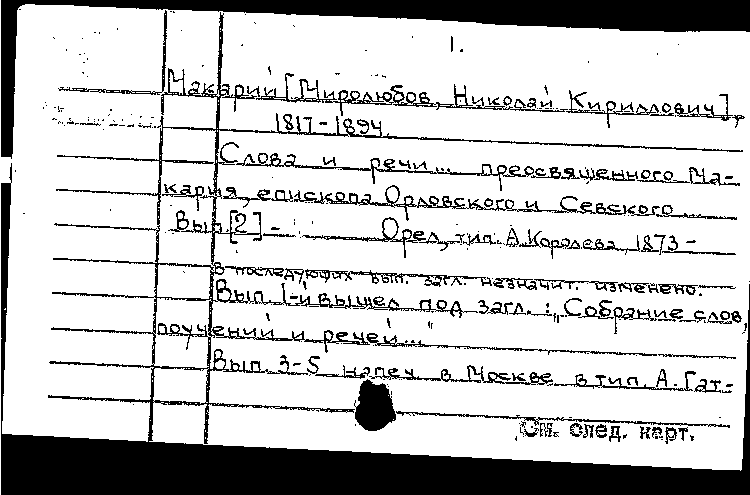 1.
Макарий [Миролюбов, Николай Кириллович],
1817-1894.
Слова и речи... преосвященного Ма-
кария, епископа Орловского и Севского...
Вып. [2] - Орел, тип. А. Королева, 1873-
В последующих вып. загл. незначит. изменено.
Вып. 1-й вышел под загл.: "Собрание слов,
поучений и речей..."
Вып. 3-5 напеч. в Москве в тип. А. Гат-
См. след. карт.